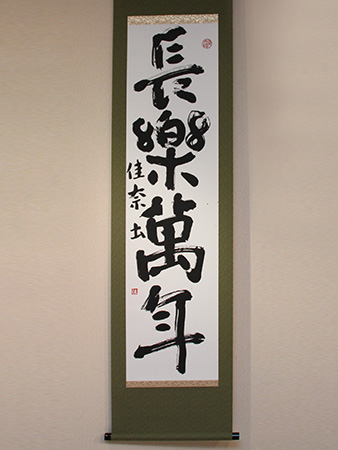 長樂萬年
佳奈出